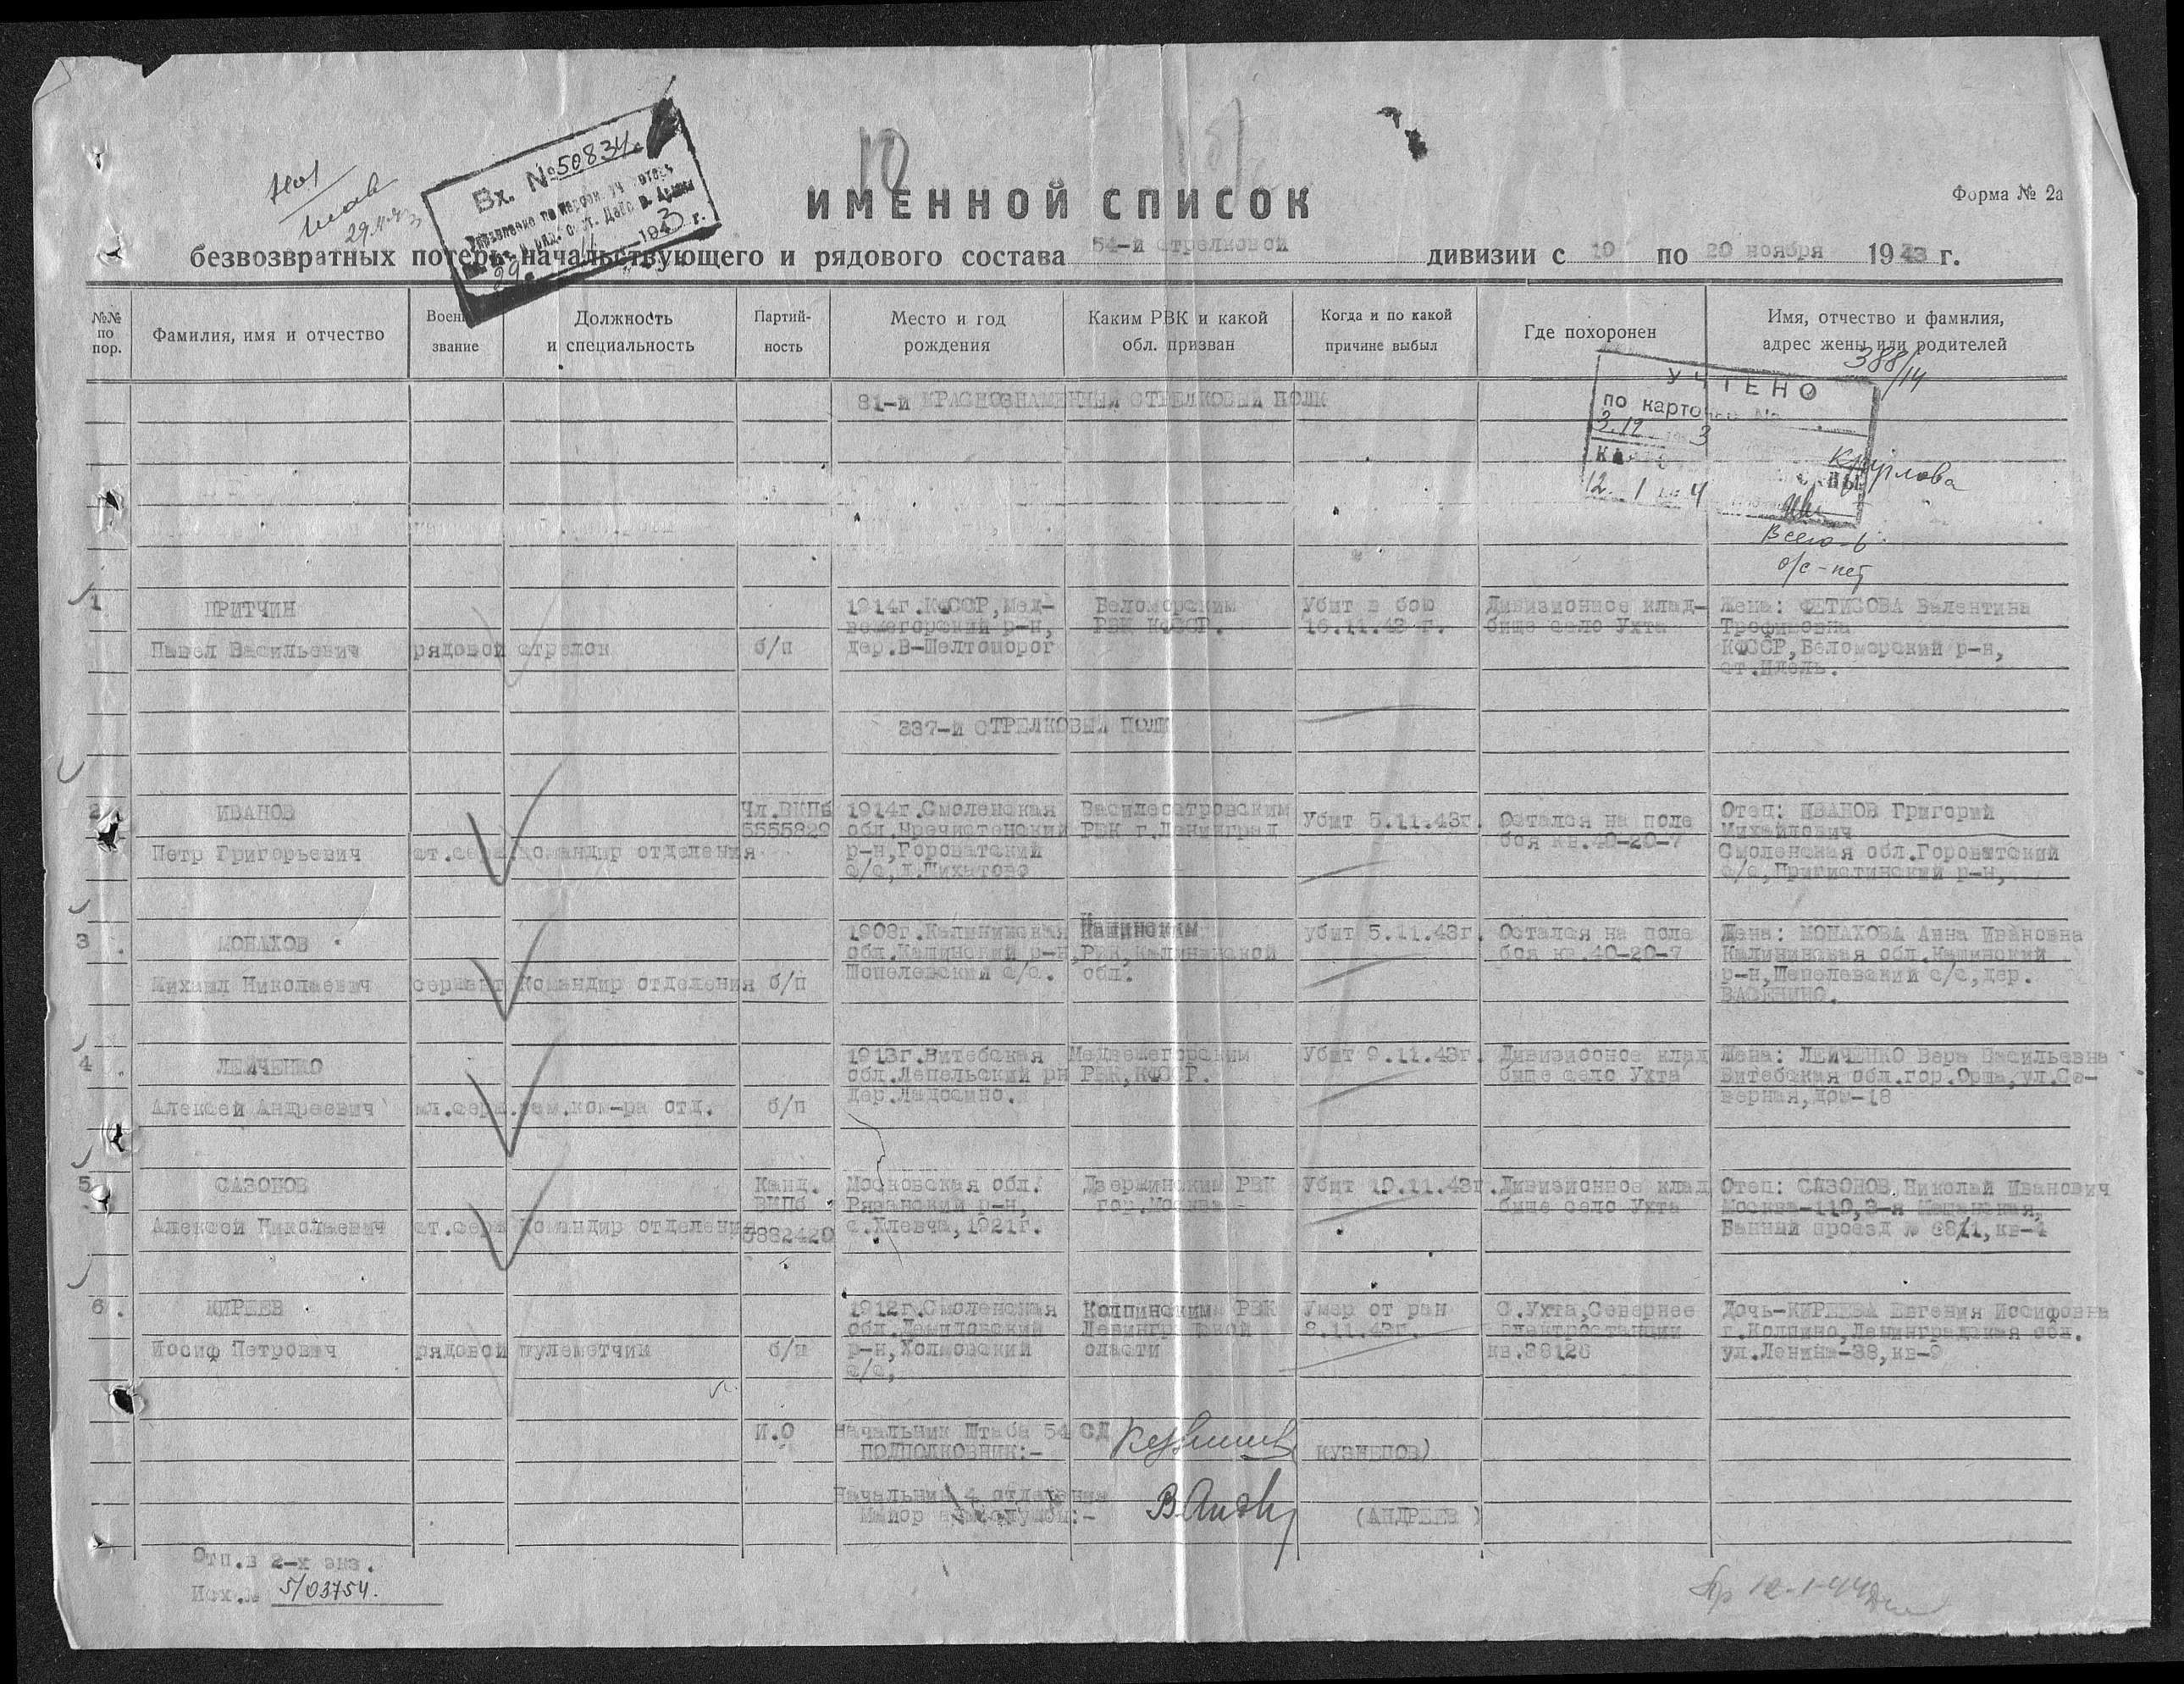 Вх. №50834
29 11 1943 г.
10
ИМЕННОЙ СПИСОК
Форма № 2а
безвозвратных потерь начальствующего и рядового состава 54-й стрелковой дивизии с 10 по 20 ноября 1943 г.
№№ по пор.
Фамилия, имя и отчество
звание
Должность и специальность
Партий-ность
Место и год рождения
Каким РВК и какой обл. призван
Когда и по какой причине выбыл
Где похоронен
Имя, отчество и фамилия, адрес жены или родителей
388/14
УЧТЕНО
по картотеке №
3.12 3
12. 1 4
Круглова
Всего-6
о/с-нет
81-й КРАСНОЗНАМЕННЫЙ СТРЕЛКОВЫЙ ПОЛК
1 ПРИТЧИН 1914г.КФССР,Мед- Беломорским Убит в бою Дивизионное клад- Жена: ФЕТИСОВА Валентина
вежегорский р-н, РВК КФССР. 16.11.43 г. бище село Ухта Трофимовна
Павел Васильевич рядовой стрелок б/п дер.В-Шелтопорог КФССР,Беломорский р-н,
ст.Идель.
337-й СТРЕЛКОВЫЙ ПОЛК
2 ИВАНОВ Чл.ВКПб 1914г.Смоленская Василеостровским Убит 5.11.43г. Остался на поле Отец: ИВАНОВ Григорий
5555829 обл. РВК г.Ленинград боя кв.40-20-7 Михайлович
Петр Григорьевич ст.серж. командир отделения р-н, Смоленская обл.
с/с, с/с, р-н,
3 МОНАХОВ 1908г.Калининская Кашинским убит 5.11.43г. Остался на поле Жена: МОНАХОВА Анна Ивановна
обл.Кашинский р-н, РВК,Калининской боя кв.40-20-7 Калининская обл.Кашинский
Михаил Николаевич сержант Командир отделения б/п Шепелевский с/с. обл. р-н,Шепелевский с/с,дер.
ВАСЕНИНО.
4 ЛЕЙЧЕНКО 1913г.Витебская Медвежегорским Убит 9.11.43г. Дивизионное клад Жена: ЛЕЙЧЕНКО Вера Васильевна
обл.Лепельский рн РВК,КФССР. бище село Ухта Витебская обл.гор.Орша,ул.Се-
Алексей Андреевич мл.серж. зам.ком-ра отд. б/п дер. верная,дом-18
5 САЗОНОВ Канд. Московская обл. Дзержинским РВК Убит 10.11.43г. Дивизионное клад Отец: САЗОНОВ Николай Иванович
ВКПб Рязанский р-н, гор.Москва бище село Ухта Москва-110,3-я Мещанская,
Алексей Николаевич ст.серж командир отделения 5882420 с.Хлевча,1921г. Банный проезд кв-4
6. КИРЕЕВ 1912г.Смоленская Колпинским РВК Умер от ран С.Ухта,Севернее Дочь-КИРЕЕВА Евгения Иосифовна
обл.Демидовский Ленинградской 8.11.43г. электростанции г.Колпино,Ленинградская обл.
Иосиф Петрович рядовой пулеметчик б/п р-н,Холмовский области кв.38126 ул.Ленина-38,кв-9
с/с,
И.О Начальник Штаба 54 СД
ПОДПОЛКОВНИК:- КУЗНЕЦОВ)
Начальник 4 отделения
Майор (АНДРЕЕВ )
Отп.в 2-х экз.
Исх.№ 5/03754.
12-1-44